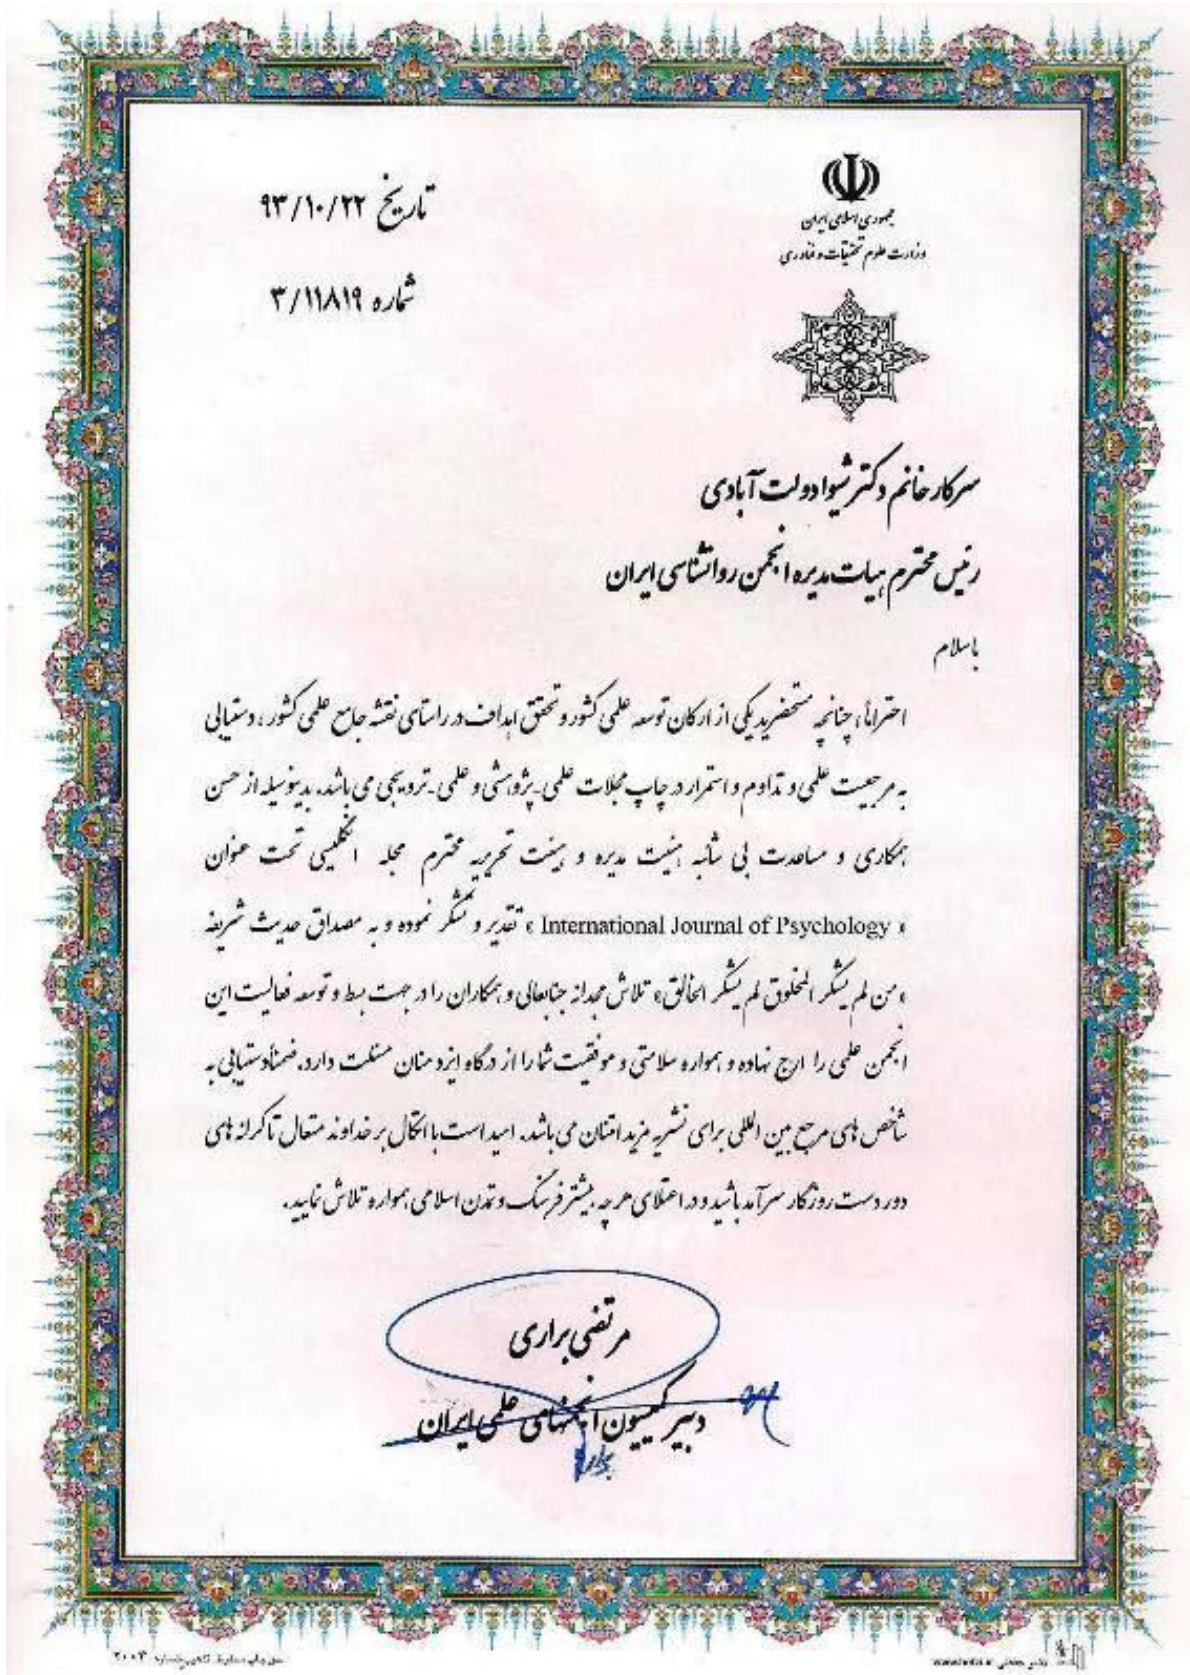 جمهوری اسلامی ایران
وزارت علوم تحقیقات و فناوری
تاریخ ۹۳/۱۰/۲۲
شماره ۳/۱۱۸۱۹
سرکار خانم دکتر شیوا دولت آبادی
رئیس محترم هیات مدیره انجمن روانشناسی ایران
باسلام
احتراماً، چنانچه مستحضرید یکی از ارکان توسعه علمی کشور و تحقق اهداف در راستای نقشه جامع علمی کشور، دستیابی
به مرجعیت علمی و تداوم و استمرار در چاپ مجلات علمی-پژوهشی و علمی-ترویجی می باشد. بدینوسیله از حسن
همکاری و مساعدت بی شائبه هیئت مدیره و هیئت تحریریه محترم مجله انگلیسی تحت عنوان
« International Journal of Psychology » تقدیر و تشکر نموده و به مصداق حدیث شریفه
«من لم یشکر المخلوق لم یشکر الخالق» تلاش مجدانه جنابعالی و همکاران را در جهت بسط و توسعه فعالیت این
انجمن علمی را ارج نهاده و همواره سلامتی و موفقیت شما را از درگاه ایزد منان مسئلت دارد. ضمناً دستیابی به
شاخص های مرجع بین المللی برای نشریه مزید امتنان می باشد. امید است با اتکال بر خداوند متعال تا کرانه های
دور دست روزگار سرآمد باشید و در اعتلای هر چه بیشتر فرهنگ و تمدن اسلامی همواره تلاش نمایید.
مرتضی براری
دبیر کمیسیون انجمنهای علمی ایران
۲۰۰۳